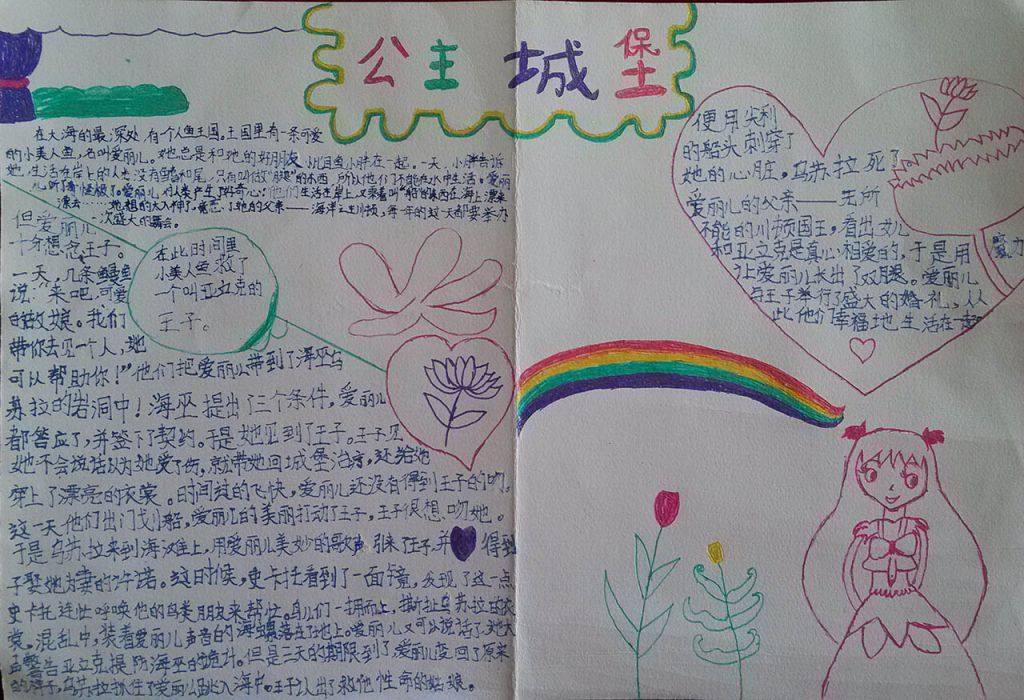 公主城堡
在大海的最深处,有个人鱼王国。王国里有一条可爱
的小美人鱼,名叫爱丽儿。她总是和她的好朋友小比目鱼小胖在一起。一天,小胖告诉
她,生活在岸上的人类没有鱼鳍和尾,只有叫做"腿"的东西,所以他们不能在水中生活。爱丽
儿听了奇怪极了。爱丽儿对人类产生了好奇心:他们生活在岸上,又乘着叫"船"的东西在海上漂来
漂去……她想的太入神了,竟忘了她的父亲——海洋之王川顿,每年的这天都要举办
一次盛大的舞会。
在此时间里
小美人鱼救了
一个叫亚立克的
王子。
但爱丽儿
十分想念王子。
一天,几条鳗鱼
说:"来吧,可爱
的姑娘。我们
带你去见一个人,她
可以帮助你!"他们把爱丽儿带到了海巫乌
苏拉的岩洞中!海巫提出了三个条件,爱丽儿
都答应了,并签下了契约。于是她见到了王子。王子见
她不会说话以为她受了伤,就带她回城堡治疗,还给她
穿上了漂亮的衣裳。时间过的飞快,爱丽儿还没有得到王子的吻。
这一天他们出门划船,爱丽儿的美丽打动了王子,王子很想吻她。
于是乌苏拉来到海滩上,用爱丽儿美妙的歌声引来了王子,并得到
了娶她为妻的许诺。这时候,史卡托看到了一面镜,发现了这一点
史卡托连忙呼唤他的鸟类朋友来帮忙。鸟儿们一拥而上,撕扯乌苏拉的衣
裳。混乱中,装着爱丽儿声音的海螺落在了地上。爱丽儿又可以说话了,她大
声警告亚立克提防海巫的诡计。但是三天的期限到了爱丽儿变回了原来
的样子,乌苏拉抓住了爱丽儿跳入海中。王子认出了救他性命的姑娘。
便用尖利
的船头刺穿了
她的心脏。乌苏拉死了
爱丽儿的父亲——无所
不能的川顿国王,看出女儿
和亚立克是真心相爱的,于是用魔力
让爱丽儿长出了双腿。爱丽儿
与王子举行了盛大的婚礼,从
此他们幸福地生活在一起